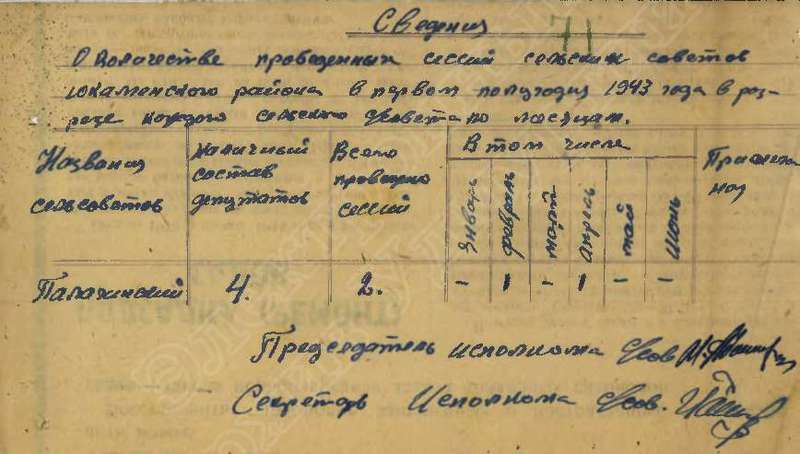 Сведения
71
О количестве проведенных сессий сельских советов
Юкаменского района в первом полугодия 1943 года в раз-
резе каждого сельского Совета по месяцам.
Названия сельсоветов
Наличный состав депутатов
Всего проведено сессий
В том числе
январь февраль март апрель май июнь
Палагинский 4. 2. - 1 - 1 - -
Председатель исполкома
Секретарь Исполкома